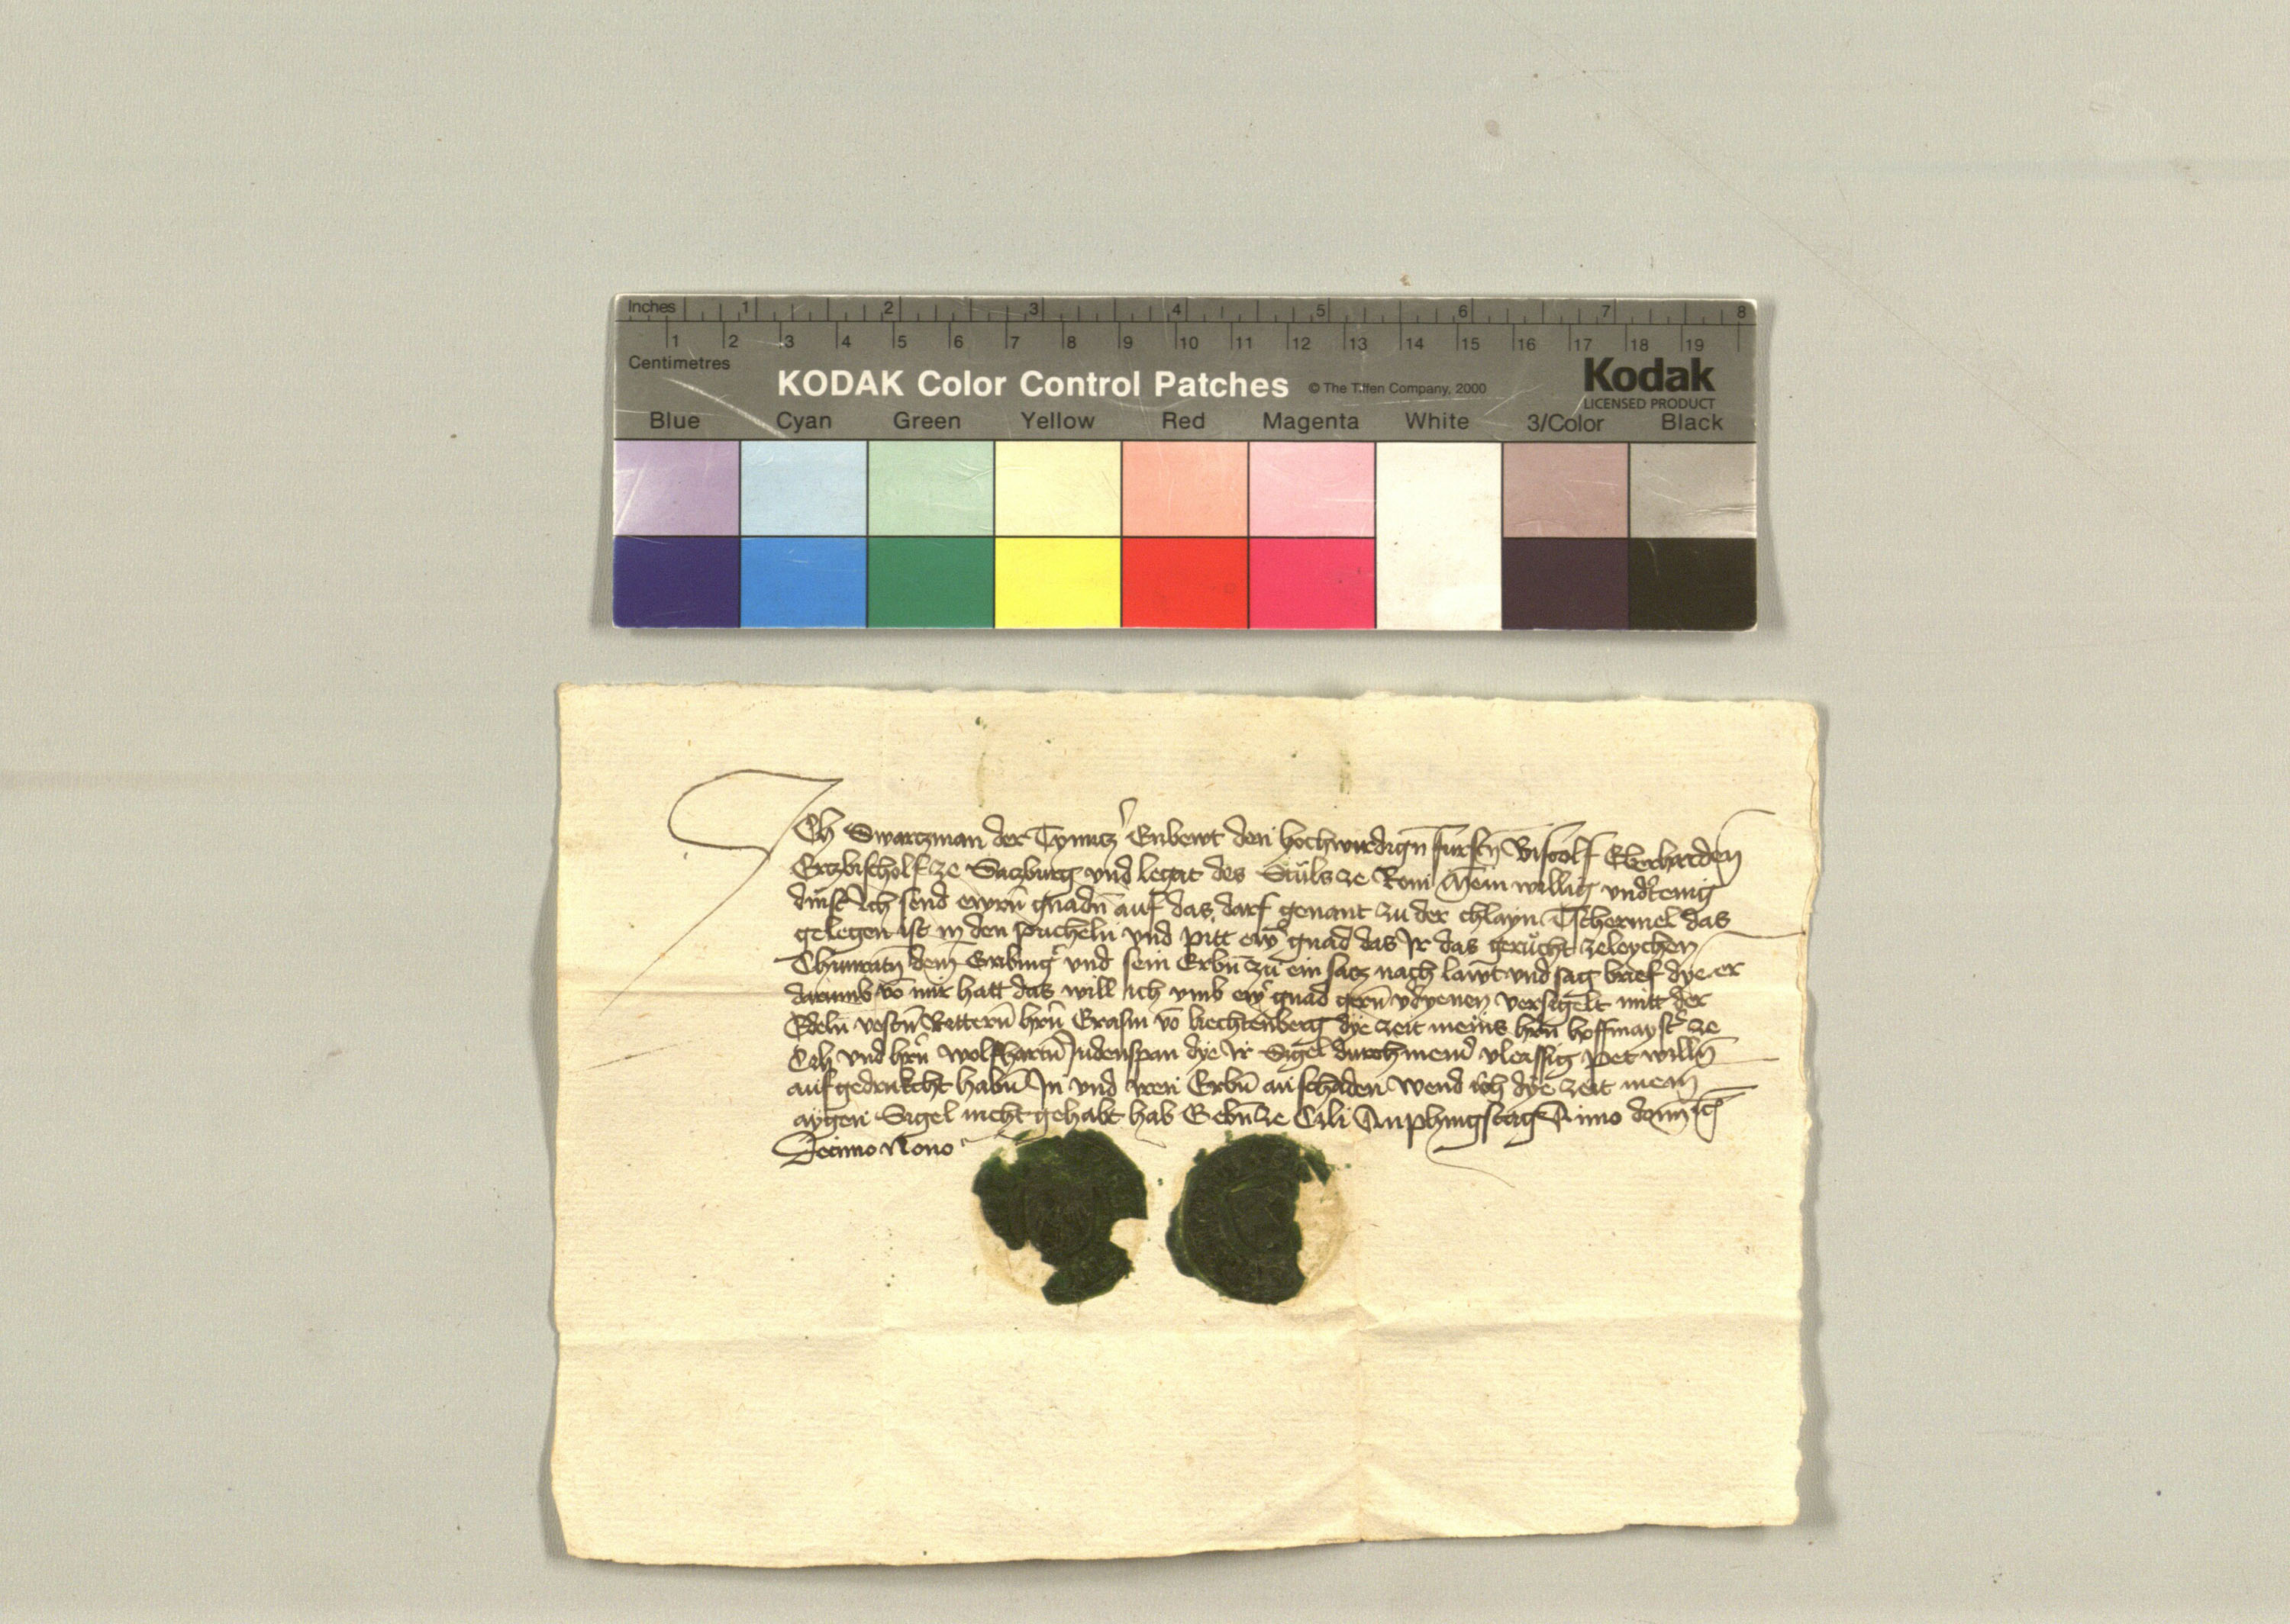 Inches 1 2 3 4 5 6 7 8
1 2 3 4 5 6 7 8 9 10 11 12 13 14 15 16 17 18 19
Centimetres
KODAK Color Control Patches © The Tiffen Company, 2000 Kodak
LICENSED PRODUCT
Blue Cyan Green Yellow Red Magenta White 3/Color Black
Ich Swartzman der Enbewt den hochwirdign fürstn Bischolf Eberharden
Ertzbischolf ze Saczburg und legat des Stuls ze Rom Mein willig undtenig
dinst ich send ewrn gnadn auf das darf genant zu der chlayn Tschermel das
gelegen ist in den pucheln und pitt ew gnad das Ir das gerucht ze leychen
Chunratn dem und sein Erbn zu ein satz nach lawt und sag brief dye er
darumb vo mir hatt das will ich umb ew gnad gern vdyenen versigelt mitt der
Edeln vestn Rittern hrn Erasm vo liechtenberg dye zeit meins hrn hoffmaystr ze
Cili und hrn Wolfhartn Judenspan dye Ir Sigel durch meind vleissig pet willn
auf gedrukcht habn In und iren Erbn an schaden Wend ich dye zeit mein
aygen Sigel nicht gehabt hab Gebn ze Cili An phingstag Anno domi
Decimo Nono